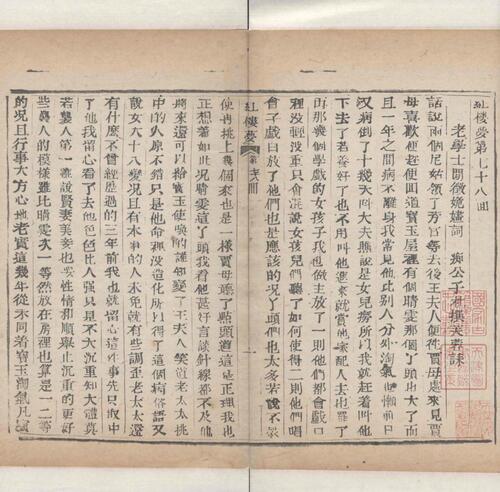 紅樓夢第七十八回
老學士閒徵姽嫿詞　痴公子杜撰芙蓉誄
話說兩個尼姑領了芳官等去後王夫人便往賈母處來見賈
母喜歡便趁便回道寶玉屋裡有個晴雯那個丫頭也大了而
且一年之間病不離身我常見他比別人分外淘氣也懶前日
又病倒了十幾天叫大夫瞧說是女兒癆所以我就赶着叫他
下去了若養好了也不用叫他進來就賞他家配人去也罷了
再那幾個學戲的女孩子我也做主放了一則他們都會戲口
裡没輕没重只會混說女孩兒們聽了如何使得二則他們唱
會子戲白放了他們也是應該的况丫頭們也太多若說不彀
紅樓夢　第七十八回
使再挑上幾個來也是一樣賈母聽了點頭道這是正理我也
正想着如此况晴雯這丫頭我看他甚好言談針線都不及他
將來還可以給寶玉使喚的誰知變了王夫人笑道老太太挑
中的人原不錯只是他命裡没造化所以得了這個病俗語又
說女大十八變况且有本事的人未免就有些調歪老太太還
有什麽不曾經歷過的三年前我也就留心這件事先只取中
了他我留心看了去他色色比人强只是不大沉重知大體莫
若襲人第一雖說賢妻美妾也要性情和順舉止沉重的更好
些襲人的模樣雖比晴雯次一等然放在房裡也算是一二等
的况且行事大方心地老實這幾年從未同着寶玉淘氣凡寶